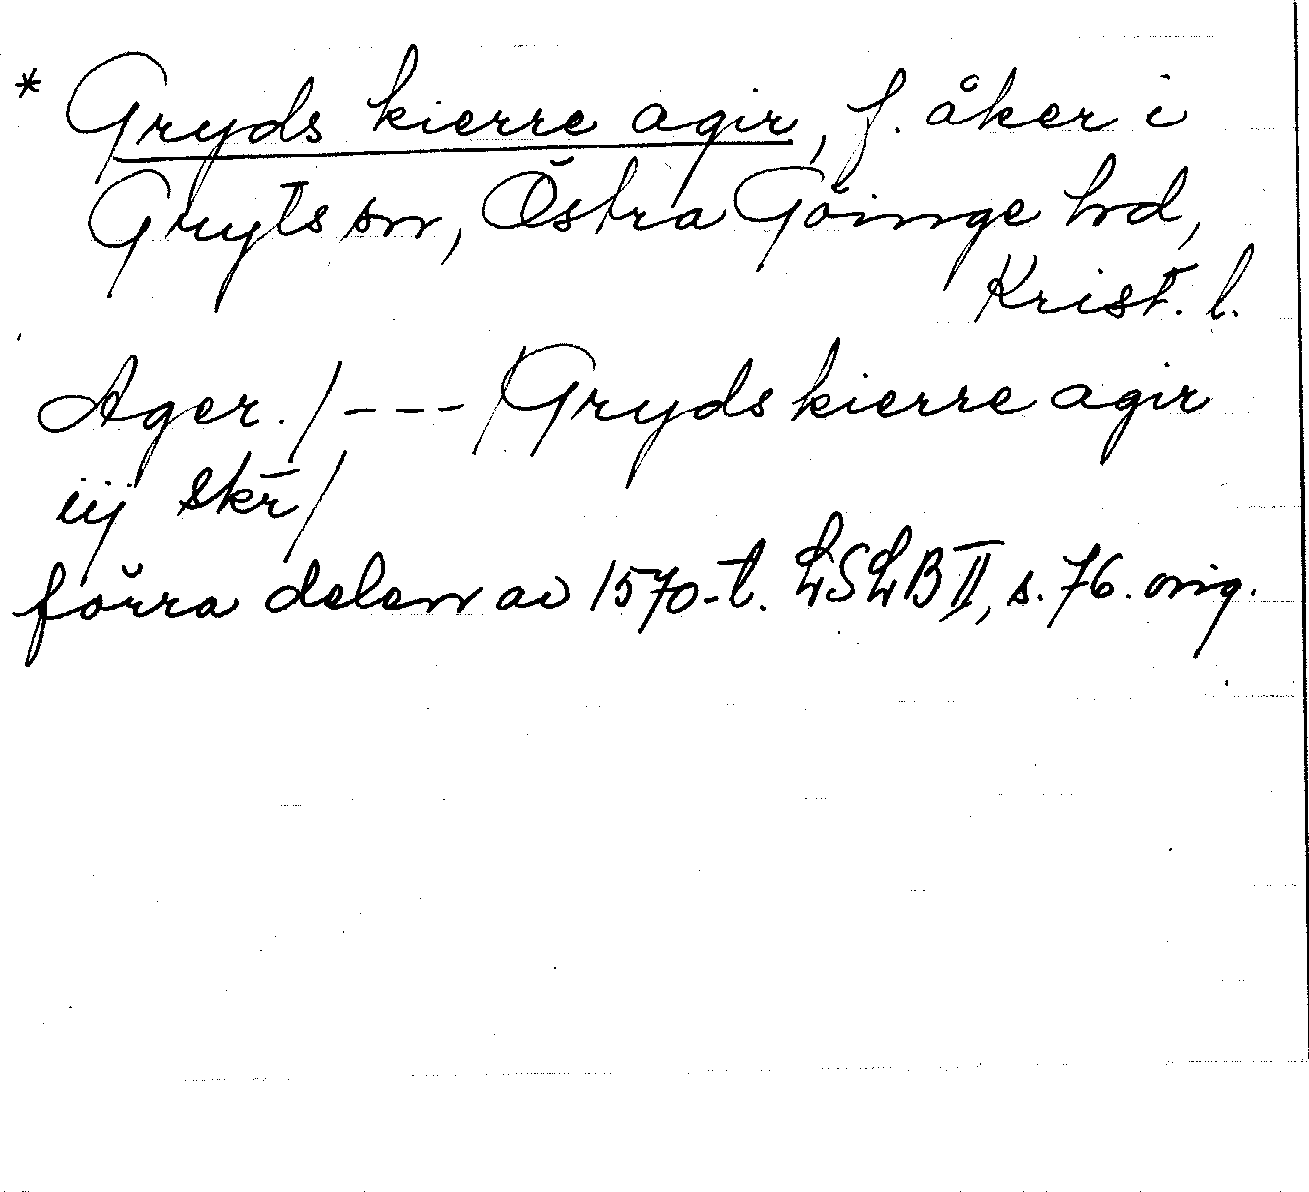 * Gryds kierre agir, f. åker i
Gryts sn, Östra Göinge hd,
Krist. l.
Ager. / - - - / Gryds kierre agir
iij skr̄ /
förra delen av 1570-t. LSLB II, s. 76. orig.